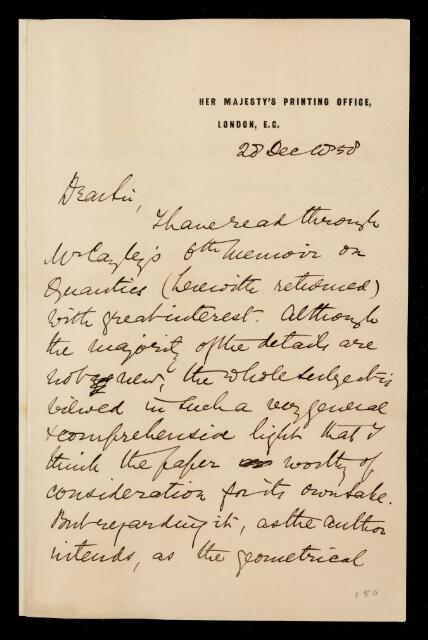 HER MAJESTY'S PRINTING OFFICE,
LONDON, E.C.
28 Dec 1858
Dear Sir,
I have read through
Mr Cayley's 6th memoir on
Quantics (herewith returned)
with great interest. Although
the majority of the details are
not new, the whole subject is
viewed in such a very general
& comprehensive light that I
think the paper worthy of
consideration for its own sake.
But regarding it, as the author
intends, as the geometrical
150